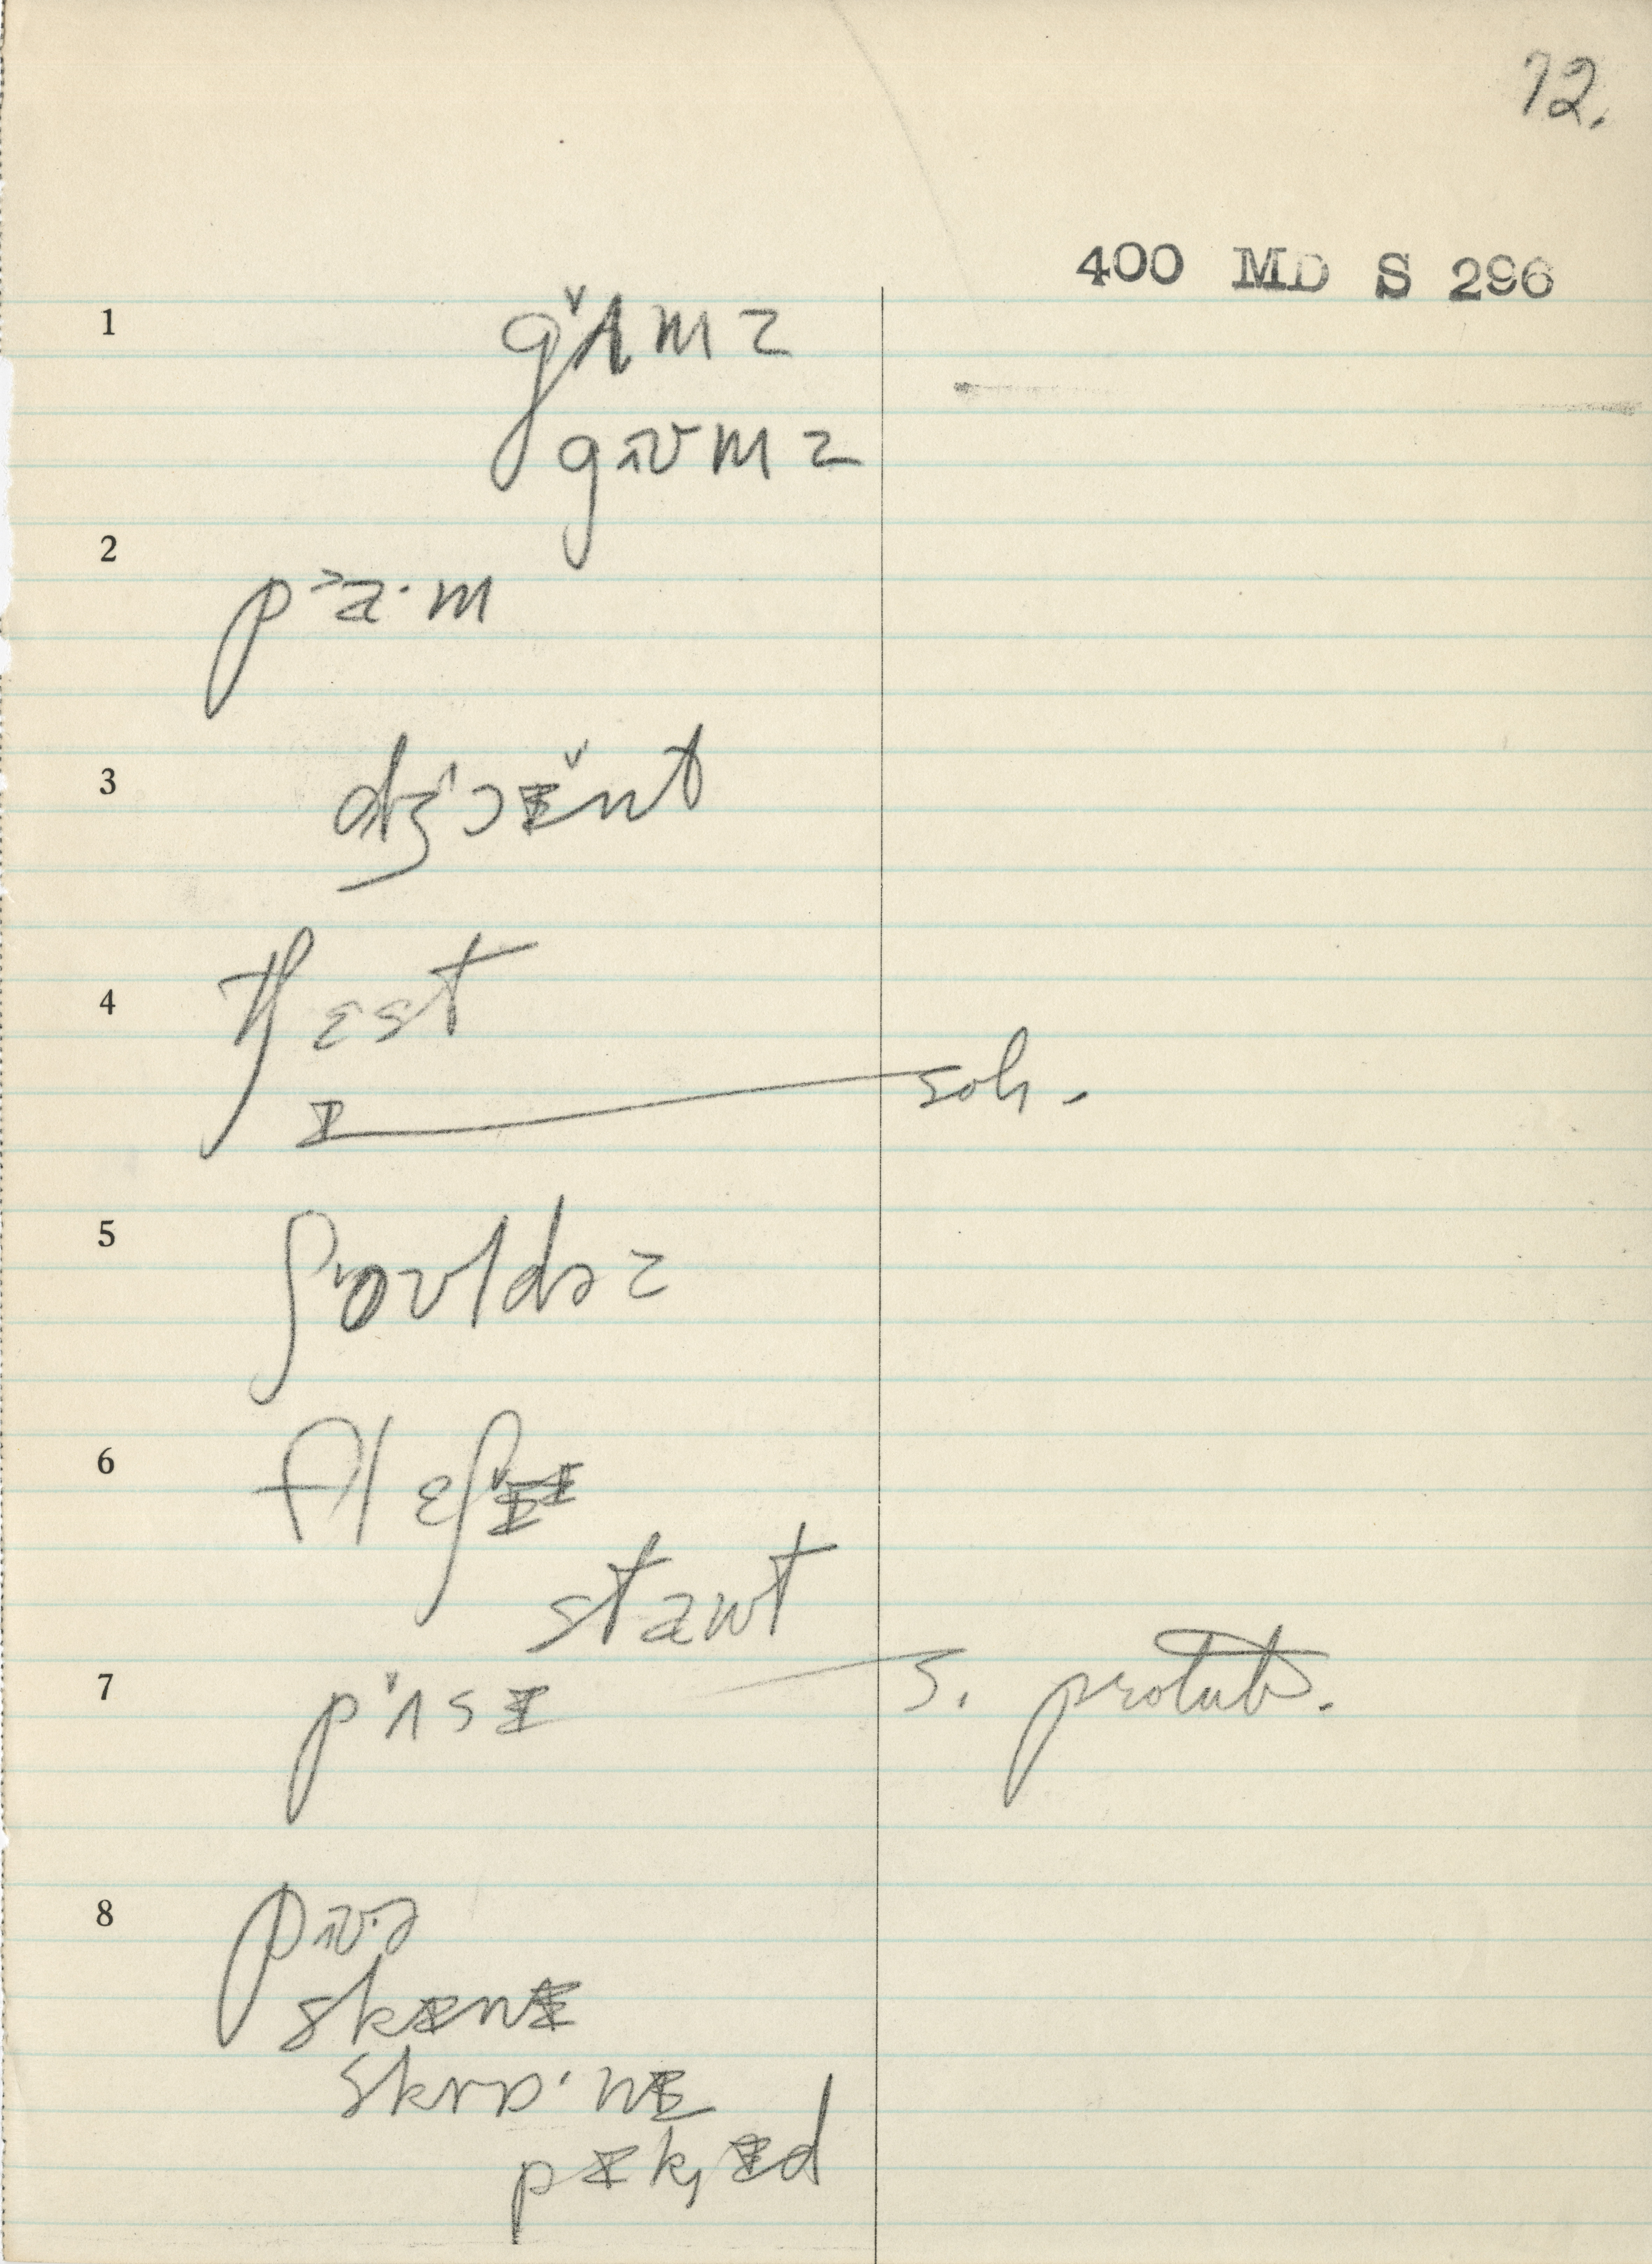 72.
400 MD S 296
1 gʌ̌mz
gɪʊmz
2 p˃a·m
3 dʒ˄ɔɪ̌nt
4 tʃɛst
ɪ soh.
5 ʃoʊldəz
6 flɛʃ
staʊt
7 pʌ̌sɪ s. protub.
8
skɪnɪ
skrɒ·nɪ
pɪk,ɪd